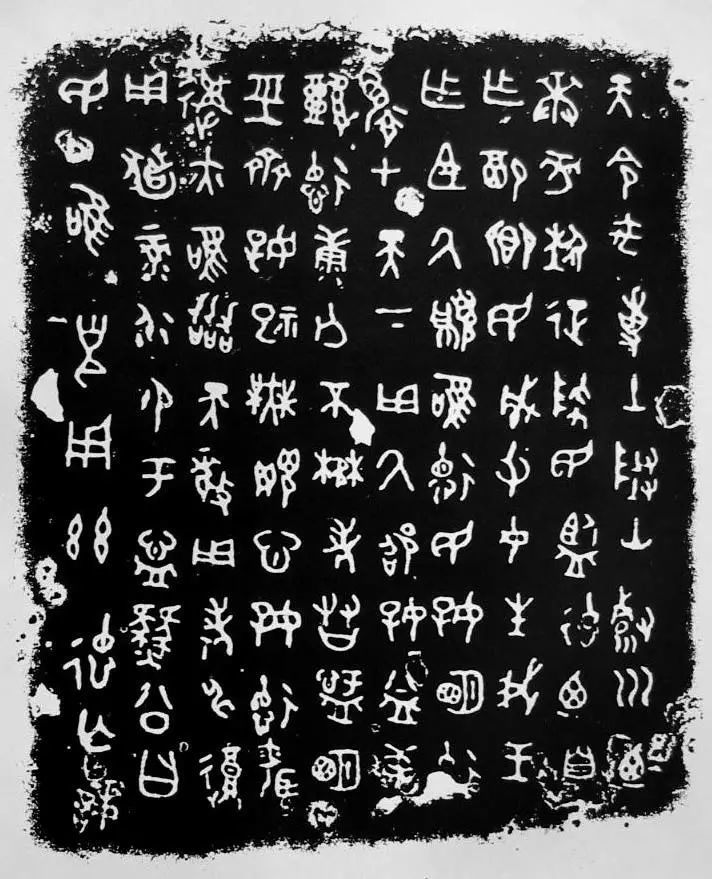 天令禹尃土隓山濬川迺
差方埶征降民監德迺自
乍配卿民成父母生我王
乍臣厥沬唯德民好明德
才天下用厥邵好益
懿德康亡不楙孝友明
巠齊好祀無心好德婚
遘亦唯協天釐用考神復
用祿永于寧公曰
民唯克用茲德亡誨